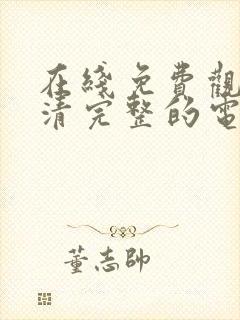 在綫免費觀
清完整的電
董志帥